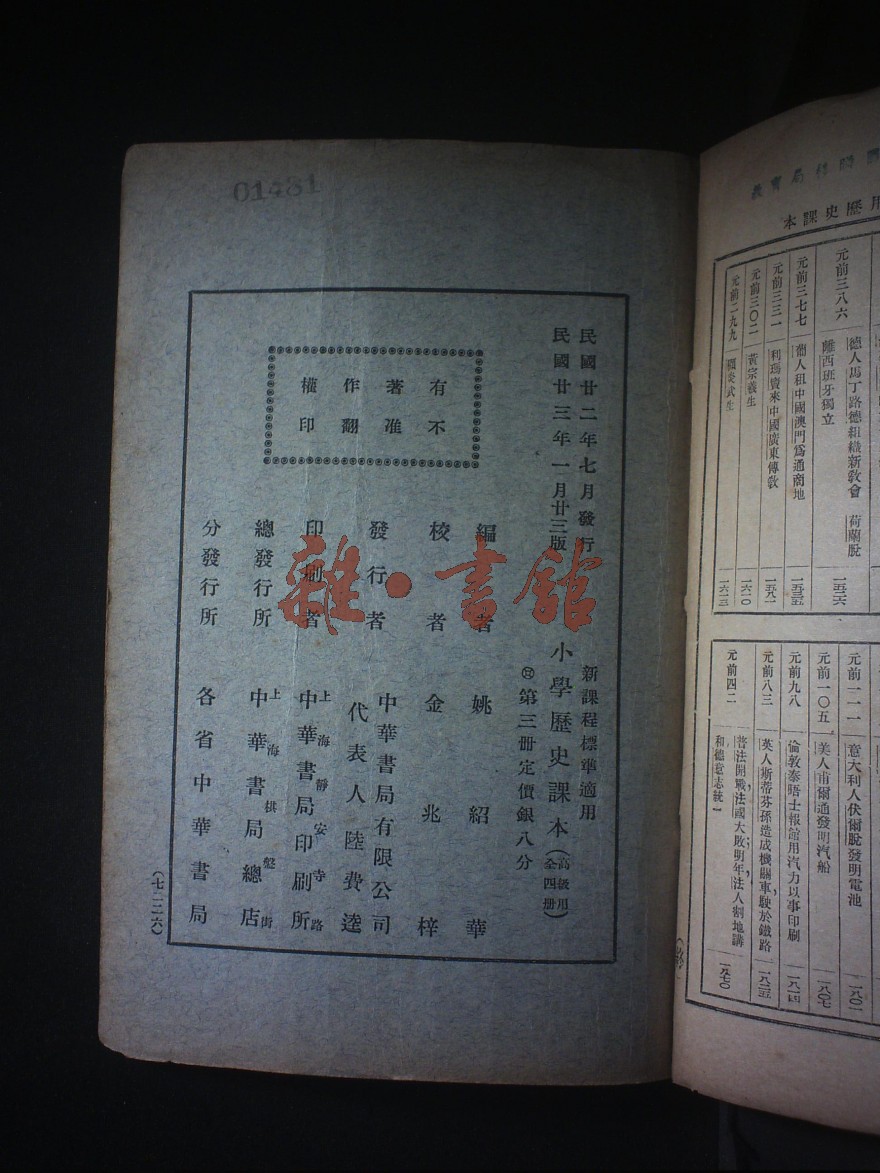 教育局
用歷史課本
元前三八六 德人馬丁路德組織新敎會 荷蘭脫
離西班牙獨立 一五二六
元前三七七 葡人租中國澳門爲通商地 一五三五
元前三三一 利瑪竇來中國廣東傳敎 一五八一
元前三〇二 黃宗羲生 一六一〇
元前二九九 顧炎武生 一六一三
元前一一一 意大利人伏爾脫發明電池 一八〇一
元前一〇五 美人甫爾通發明汽船 一八〇七
元前九八 倫敦泰晤士報館用汽力以事印刷 一八一四
元前八三 英人斯蒂芬孫造成機關車,駛於鐵路 一八二五
元前四二 普法開戰,法國大敗明年,法人割地講
和德意志統一 一八七〇
(終)
01481
民國廿二年七月發行
民國廿三年一月廿三版
有不
著准
作翻
權印
新課程標準適用
小學歷史課本(高級用全四冊)
第三冊定價銀八分
編者 姚紹華
校者 金兆梓
發行者 中華書局有限公司
代表人陸費逵
印刷者 上海靜安寺路
中華書局印刷所
總發行所 上海棋盤街
中華書局總店
分發行所 各省中華書局
(七二二六)
雜·書館